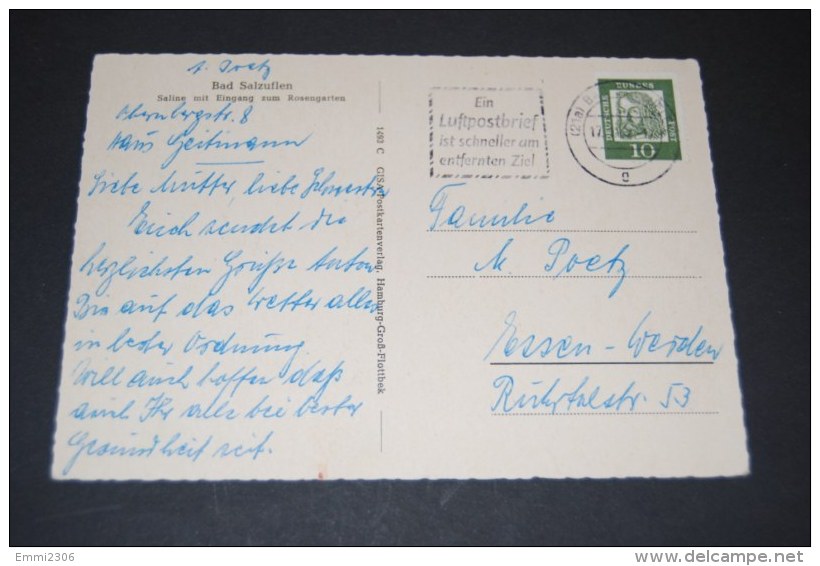 z. Poetz
Bad Salzuflen
Saline mit Eingang zum Rosengarten
Obernbergstr. 8
Haus Geitmann
Liebe Mutter, liebe Schwester
Euch sendet die
herzlichsten Grüße Anton
Bis auf das Wetter alles
in bester Ordnung
Will auch hoffen daß
auch Ihr alle bei bester
Gesundheit seit.
1493 C GISA Postkartenverlag, Hamburg-Groß-Flottbek
Ein
Luftpostbrief
ist schneller am
entfernten Ziel
(21a) B
17
g
DEUTSCHE BUNDESPOST
10
Familie
M. Poetz
Essen-Werden
Ruhrtalstr. 53
Emmi2306
delcampe.net